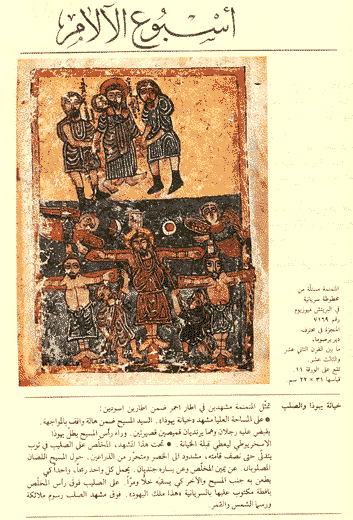 أسبوع الآلام
المنمنمة مستلّة من
مخطوطة سريانية
في البريتش ميوزيوم
رقم ٧١٦٩
المنجزة في محترف
دير برصوما،
ما بين القرن الثاني عشر
والثالث عشر.
تقع على الورقة ١١
قياسها ٣١ × ٢٢ سم
خيانة يهوذا والصلب
تمثّل المنمنمة مشهدين في اطار احمر ضمن اطارين اسودين:
● على المساحة العليا مشهد «خيانة يهوذا». السيد المسيح ضمن هالة واقف بالمواجهة.
يقبض عليه رجلان وهما يرتديان قميصين قصيرين. وراء رأس المسيح يطلّ يهوذا
الاسخريوطي ليعطي قبلة الخيانة. ● تحت هذا المشهد، المخلّص على الصليب في ثوب
يتدلّى حتى نصف قامته، مشدود الى الخصر ومتحرّر من الذراعين. حول المسيح اللصان
المصلوبان. عن يمين المخلّص وعن يساره جنديان. يحمل كل واحد رمحاً، واحد كي
يطعن به جنب المسيح والآخر كي يسقيه خلاً ومرّاً. على الصليب فوق رأس المخلّص
يافطة مكتوب عليها بالسريانية «هذا ملك اليهود». فوق مشهد الصلب رسوم ملائكة
ورسما الشمس والقمر.